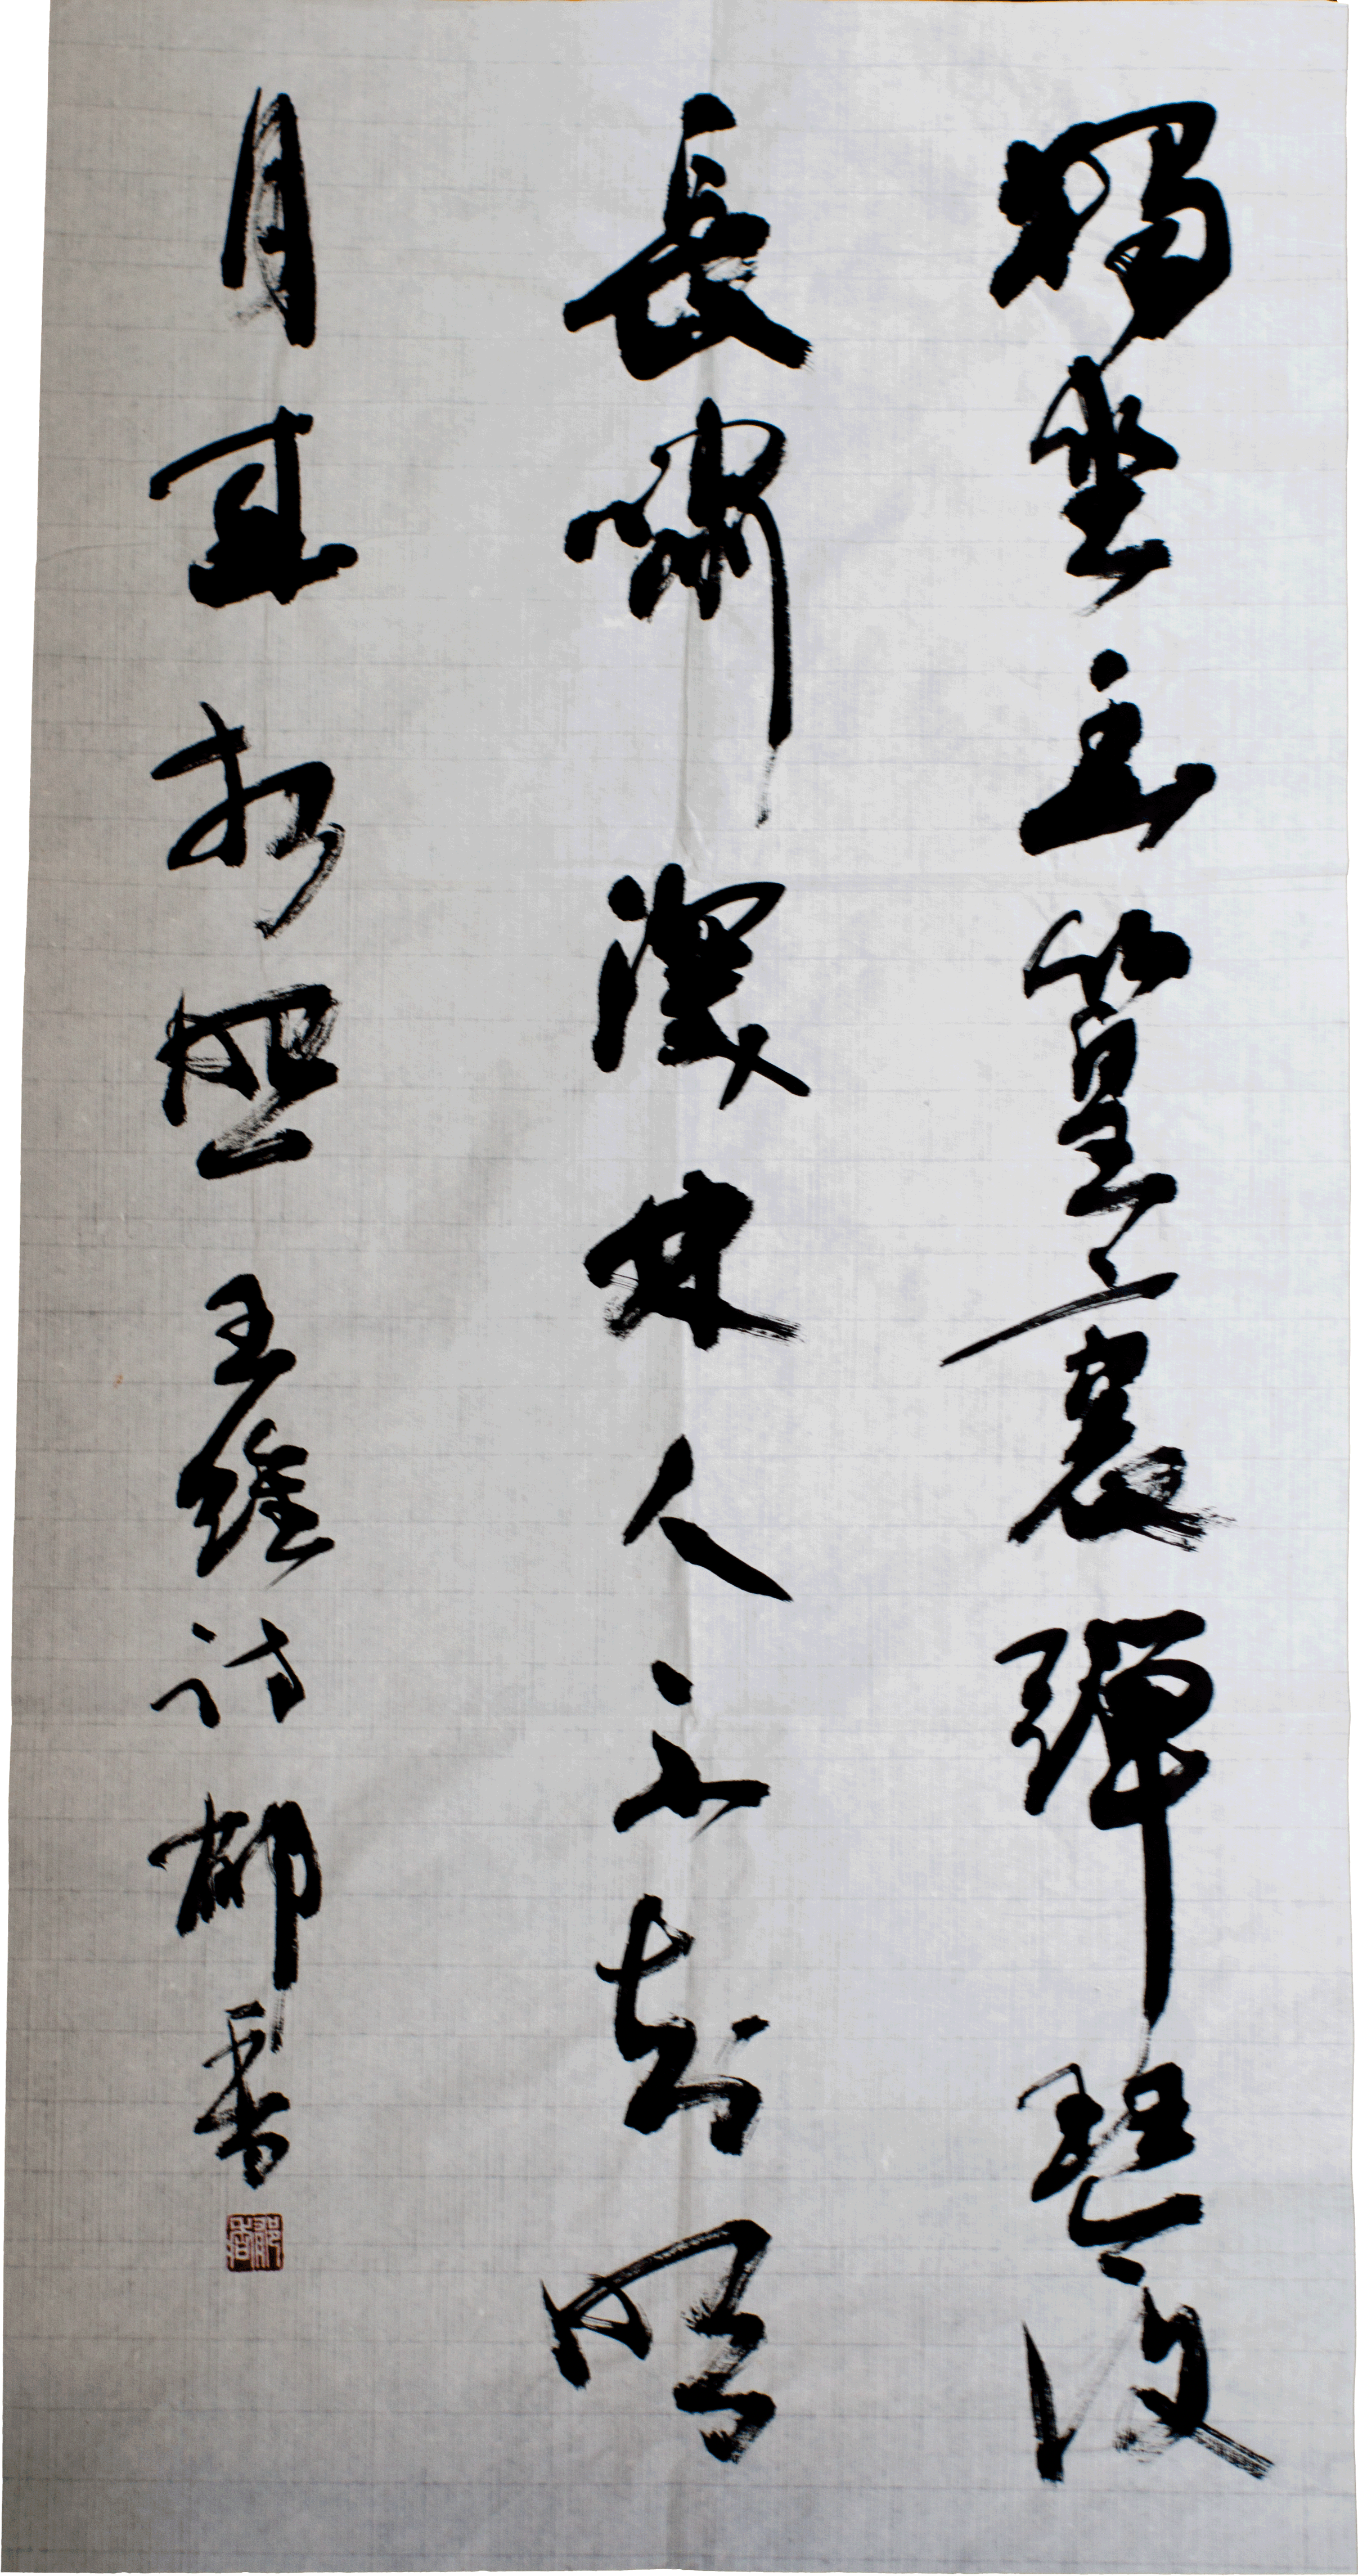 獨坐幽篁裏彈琴復
長嘯深林人不知明
月來相照王維詩郁香
郁香